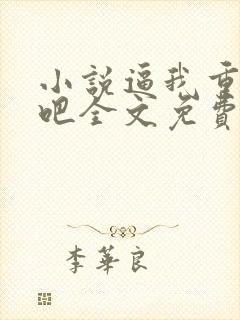 小說逼我重
吧全文免費
李華良